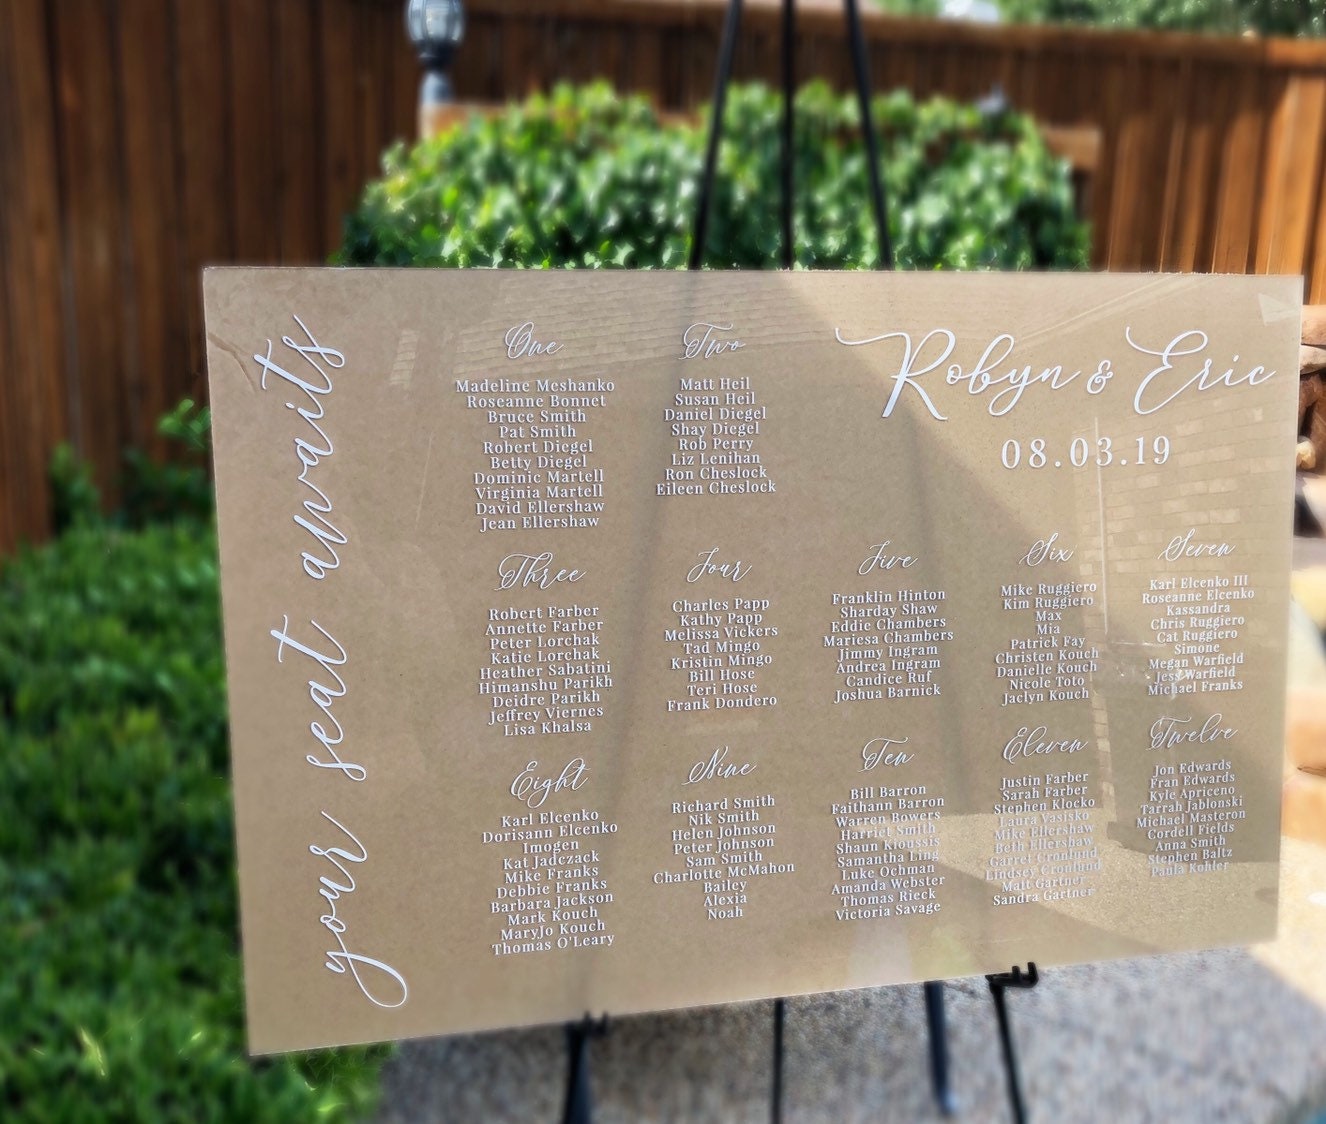 your seat awaits
Robyn & Eric
08.03.19
One
Madeline Meshanko
Roseanne Bonnet
Bruce Smith
Pat Smith
Robert Diegel
Betty Diegel
Dominic Martell
Virginia Martell
David Ellershaw
Jean Ellershaw
Two
Matt Heil
Susan Heil
Daniel Diegel
Shay Diegel
Rob Perry
Liz Lenihan
Ron Cheslock
Eileen Cheslock
Three
Robert Farber
Annette Farber
Peter Lorchak
Katie Lorchak
Heather Sabatini
Himanshu Parikh
Deidre Parikh
Jeffrey Viernes
Lisa Khalsa
Four
Charles Papp
Kathy Papp
Melissa Vickers
Tad Mingo
Kristin Mingo
Bill Hose
Teri Hose
Frank Dondero
Five
Franklin Hinton
Sharday Shaw
Eddie Chambers
Mariesa Chambers
Jimmy Ingram
Andrea Ingram
Candice Ruf
Joshua Barnick
Six
Mike Ruggiero
Kim Ruggiero
Max
Mia
Patrick Fay
Christen Kouch
Danielle Kouch
Nicole Toto
Jaclyn Kouch
Seven
Karl Elcenko III
Roseanne Elcenko
Kassandra
Chris Ruggiero
Cat Ruggiero
Simone
Megan Warfield
Jess Warfield
Michael Franks
Eight
Karl Elcenko
Dorisann Elcenko
Imogen
Kat Jadczack
Mike Franks
Debbie Franks
Barbara Jackson
Mark Kouch
MaryJo Kouch
Thomas O'Leary
Nine
Richard Smith
Nik Smith
Helen Johnson
Peter Johnson
Sam Smith
Charlotte McMahon
Bailey
Alexia
Noah
Ten
Bill Barron
Faithann Barron
Warren Bowers
Harriet Smith
Shaun Kioussis
Samantha Ling
Luke Ochman
Amanda Webster
Thomas Rieck
Victoria Savage
Eleven
Justin Farber
Sarah Farber
Stephen Klocko
Laura Vasisko
Mike Ellershaw
Beth Ellershaw
Garret Cronlund
Lindsey Cronlund
Matt Gartner
Sandra Gartner
Twelve
Jon Edwards
Fran Edwards
Kyle Apriceno
Tarrah Jablonski
Michael Masteron
Cordell Fields
Anna Smith
Stephen Baltz
Paula Kohler